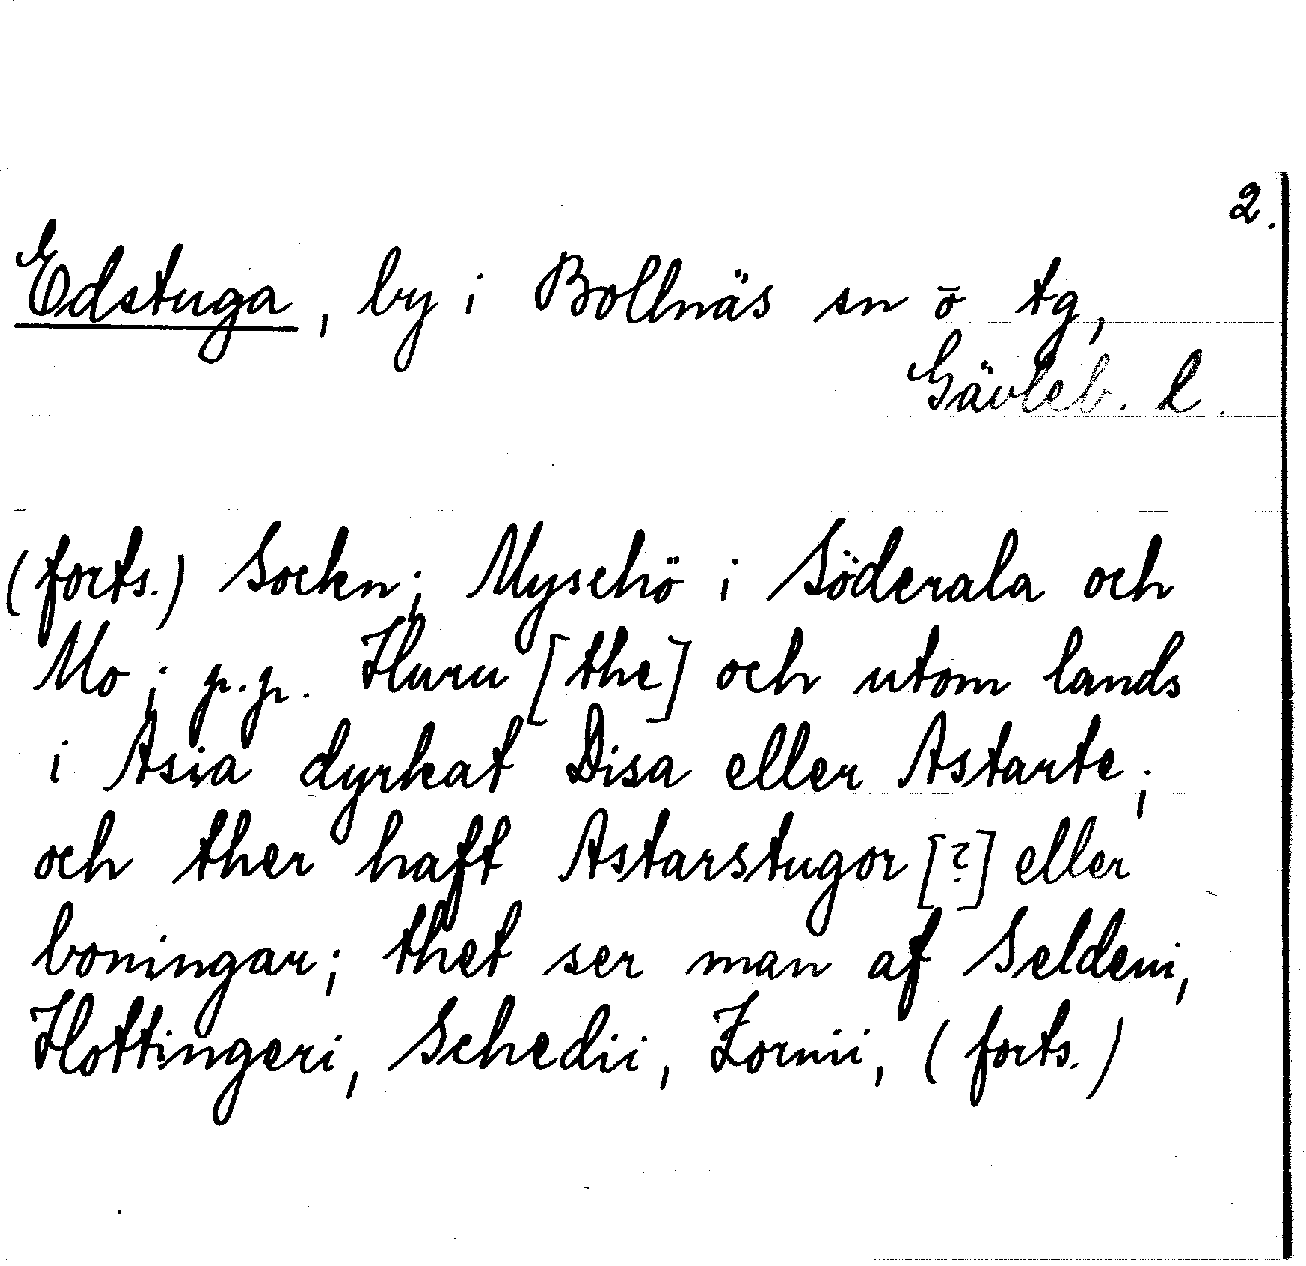 2.
Edstuga, by i Bollnäs sn ö tg,
Gävleb. l.
(forts.) Sockn; Myschö i Söderala och
Mo; p.p. Huru [the] och utom lands
i Asia dyrkat Disa eller Astarte;
och ther haft Astarstugor [?] eller
boningar; thet ser man af Seldeni,
Hottingeri, Schedii, Zornii, (forts.)